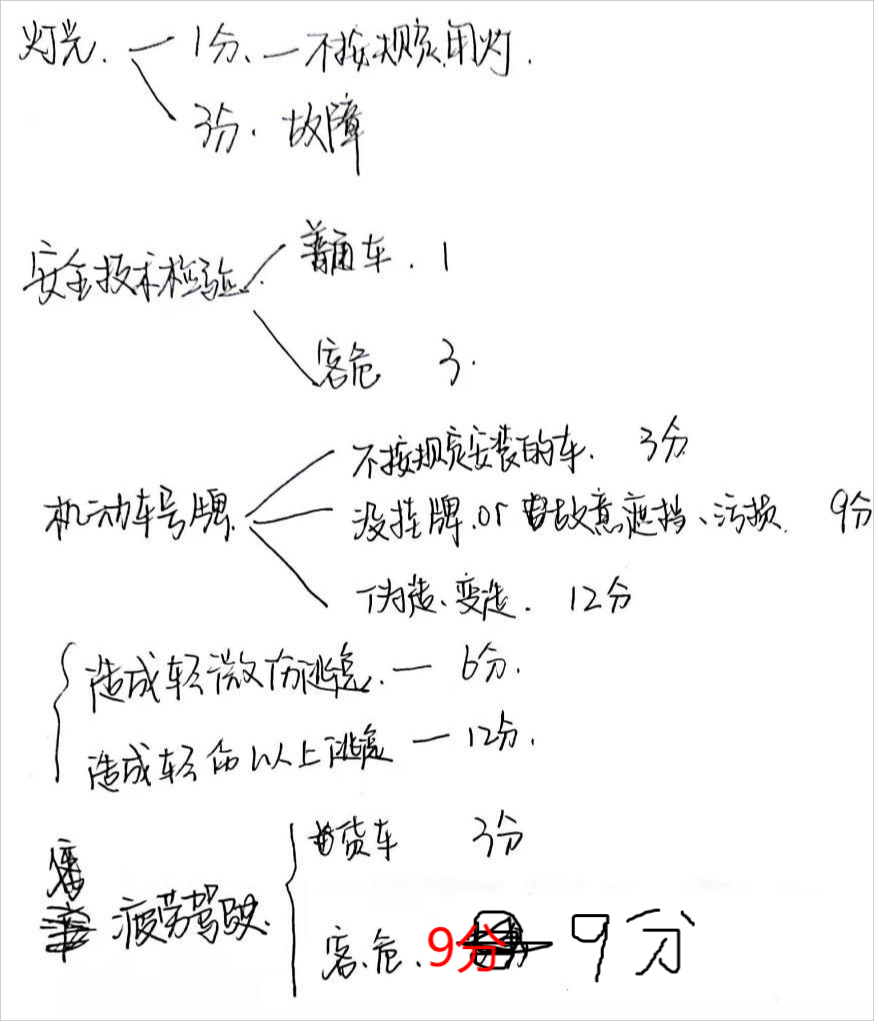 灯光. — 1分、— 不按规定用灯.
3分. 故障
安全技术检验. 普通车. 1
客危 3.
不按规定安装的车. 3分
机动车号牌. 没挂牌.or 故意遮挡、污损. 9分
伪造、变造. 12分
造成轻微伤逃逸. — 6分.
造成轻伤以上逃逸 — 12分.
货车 3分
疲劳驾驶.
客.危. 9分 9分